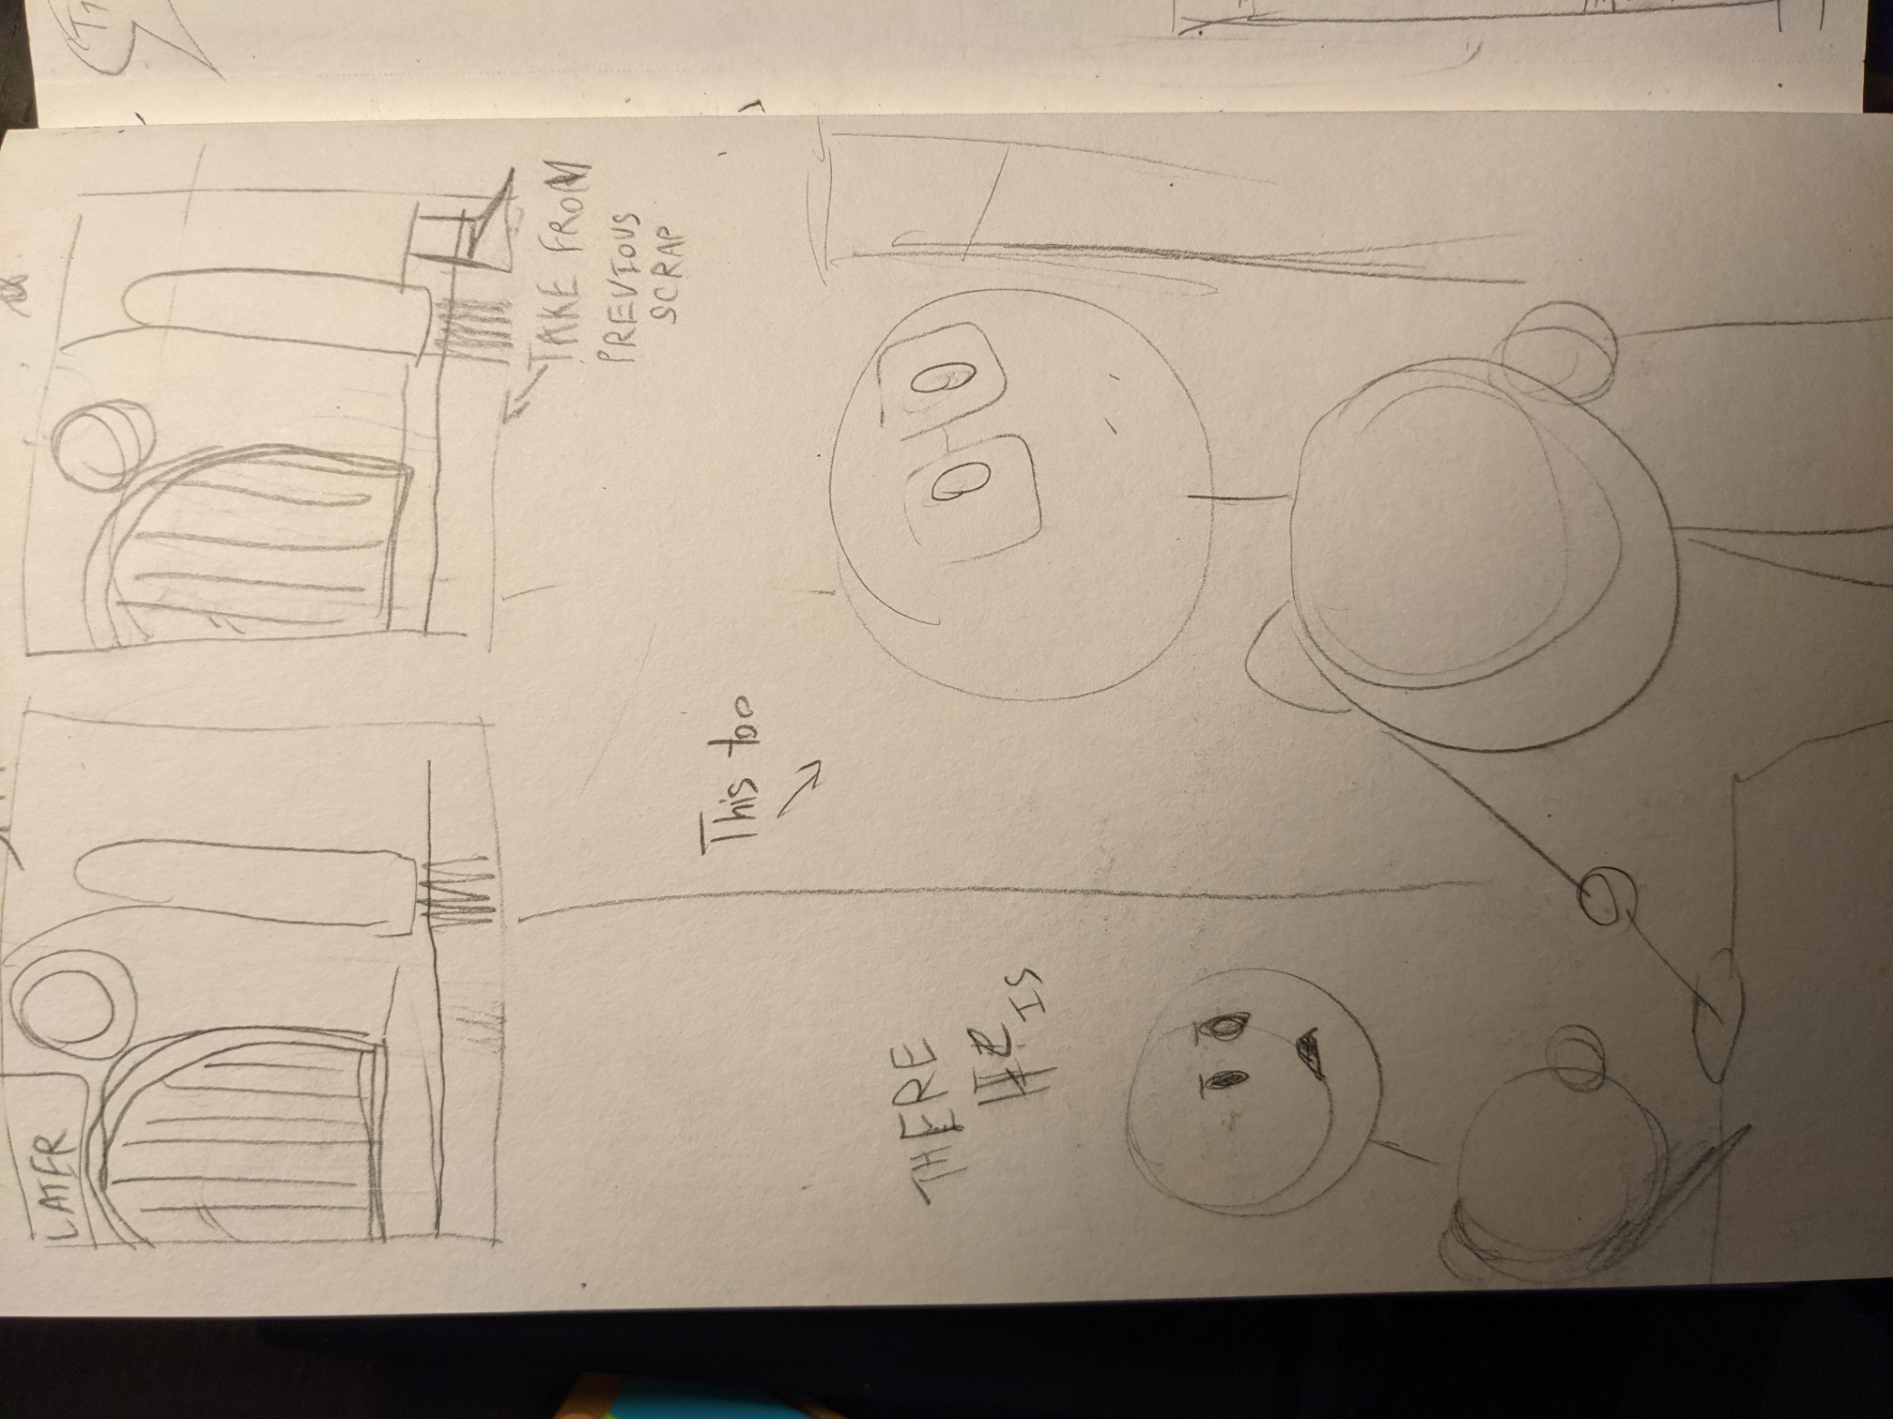 LATER
TAKE FROM
PREVIOUS
SCRAP
This too
THERE
HE
IS